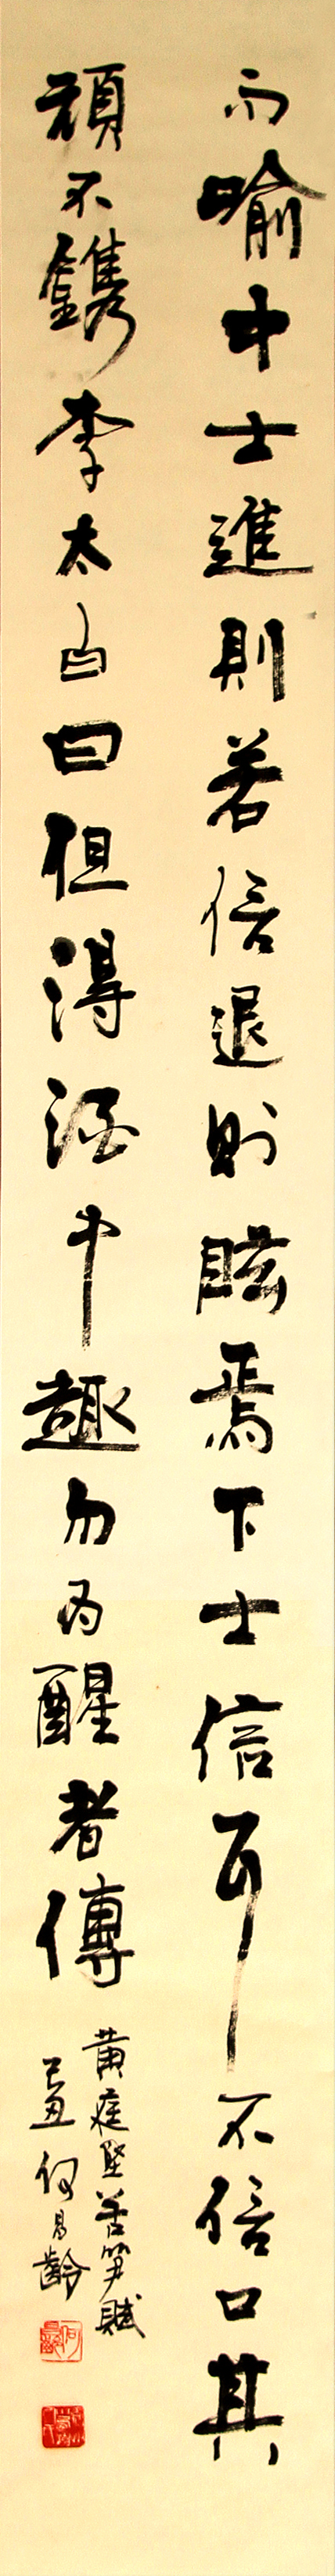 而喻中士進則若信退則眩焉下士信耳不信口其
頑不鐫李太白曰但得酒中趣勿為醒者傳
黄庭堅苦笋賦
己丑何昌齡